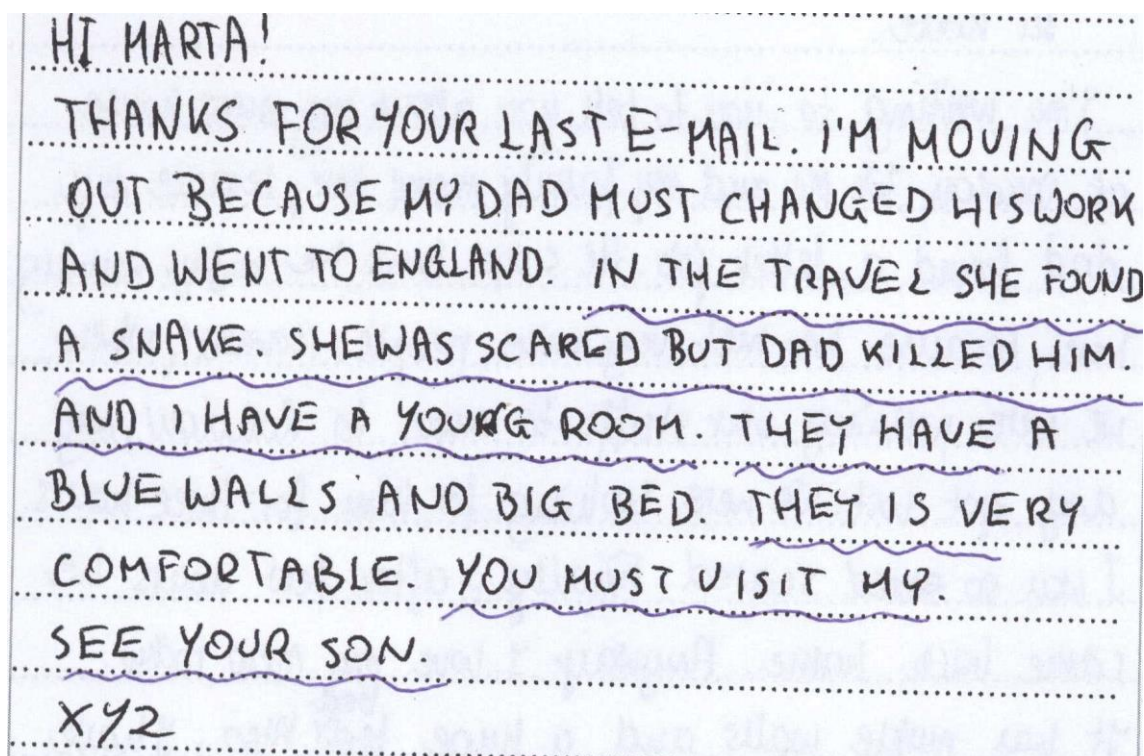 HI MARTA!
THANKS FOR YOUR LAST E-MAIL. I'M MOVING
OUT BECAUSE MY DAD MUST CHANGED HIS WORK
AND WENT TO ENGLAND. IN THE TRAVEL SHE FOUND
A SNAKE. SHE WAS SCARED BUT DAD KILLED HIM
AND I HAVE A YOUNG ROOM. THEY HAVE A
BLUE WALLS AND BIG BED. THEY IS VERY
COMFORTABLE. YOU MUST VISIT MY.
SEE YOUR SON.
XYZ